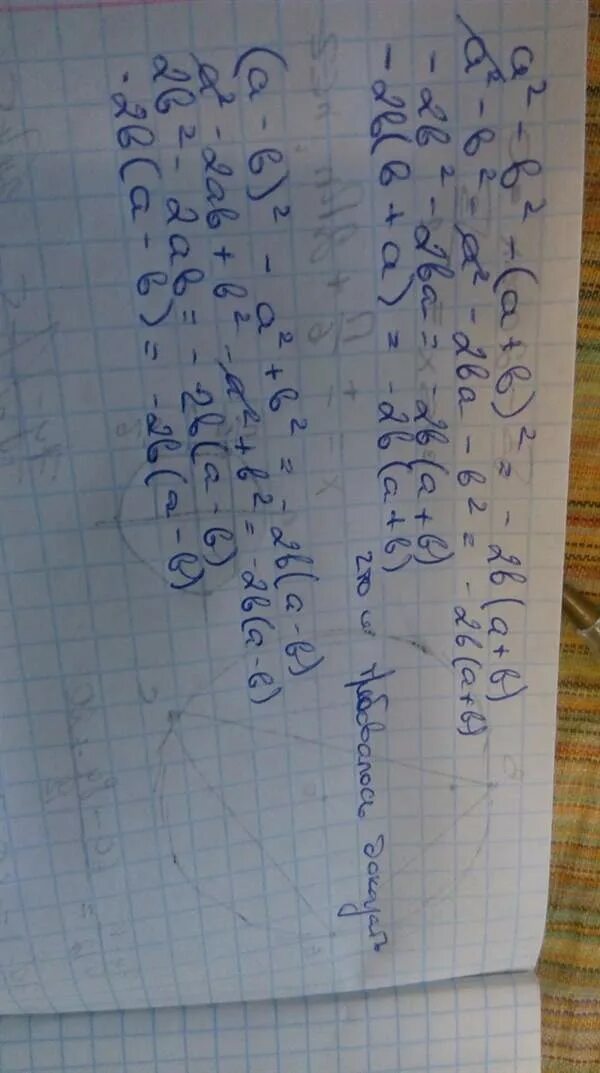 a² - b² - (a + b)² = - 2b(a + b)
a² - b² - a² - 2ba - b² = - 2b(a+b)
- 2b² - 2ba = - 2b(a+b)
- 2b(b + a) = - 2b(a+b)
что и требовалось доказать
(a - b)² - a² + b² = - 2b(a-b)
a² - 2ab + b² - a² + b² = - 2b(a-b)
2b² - 2ab = - 2b(a-b)
- 2b(a - b) = - 2b(a-b)